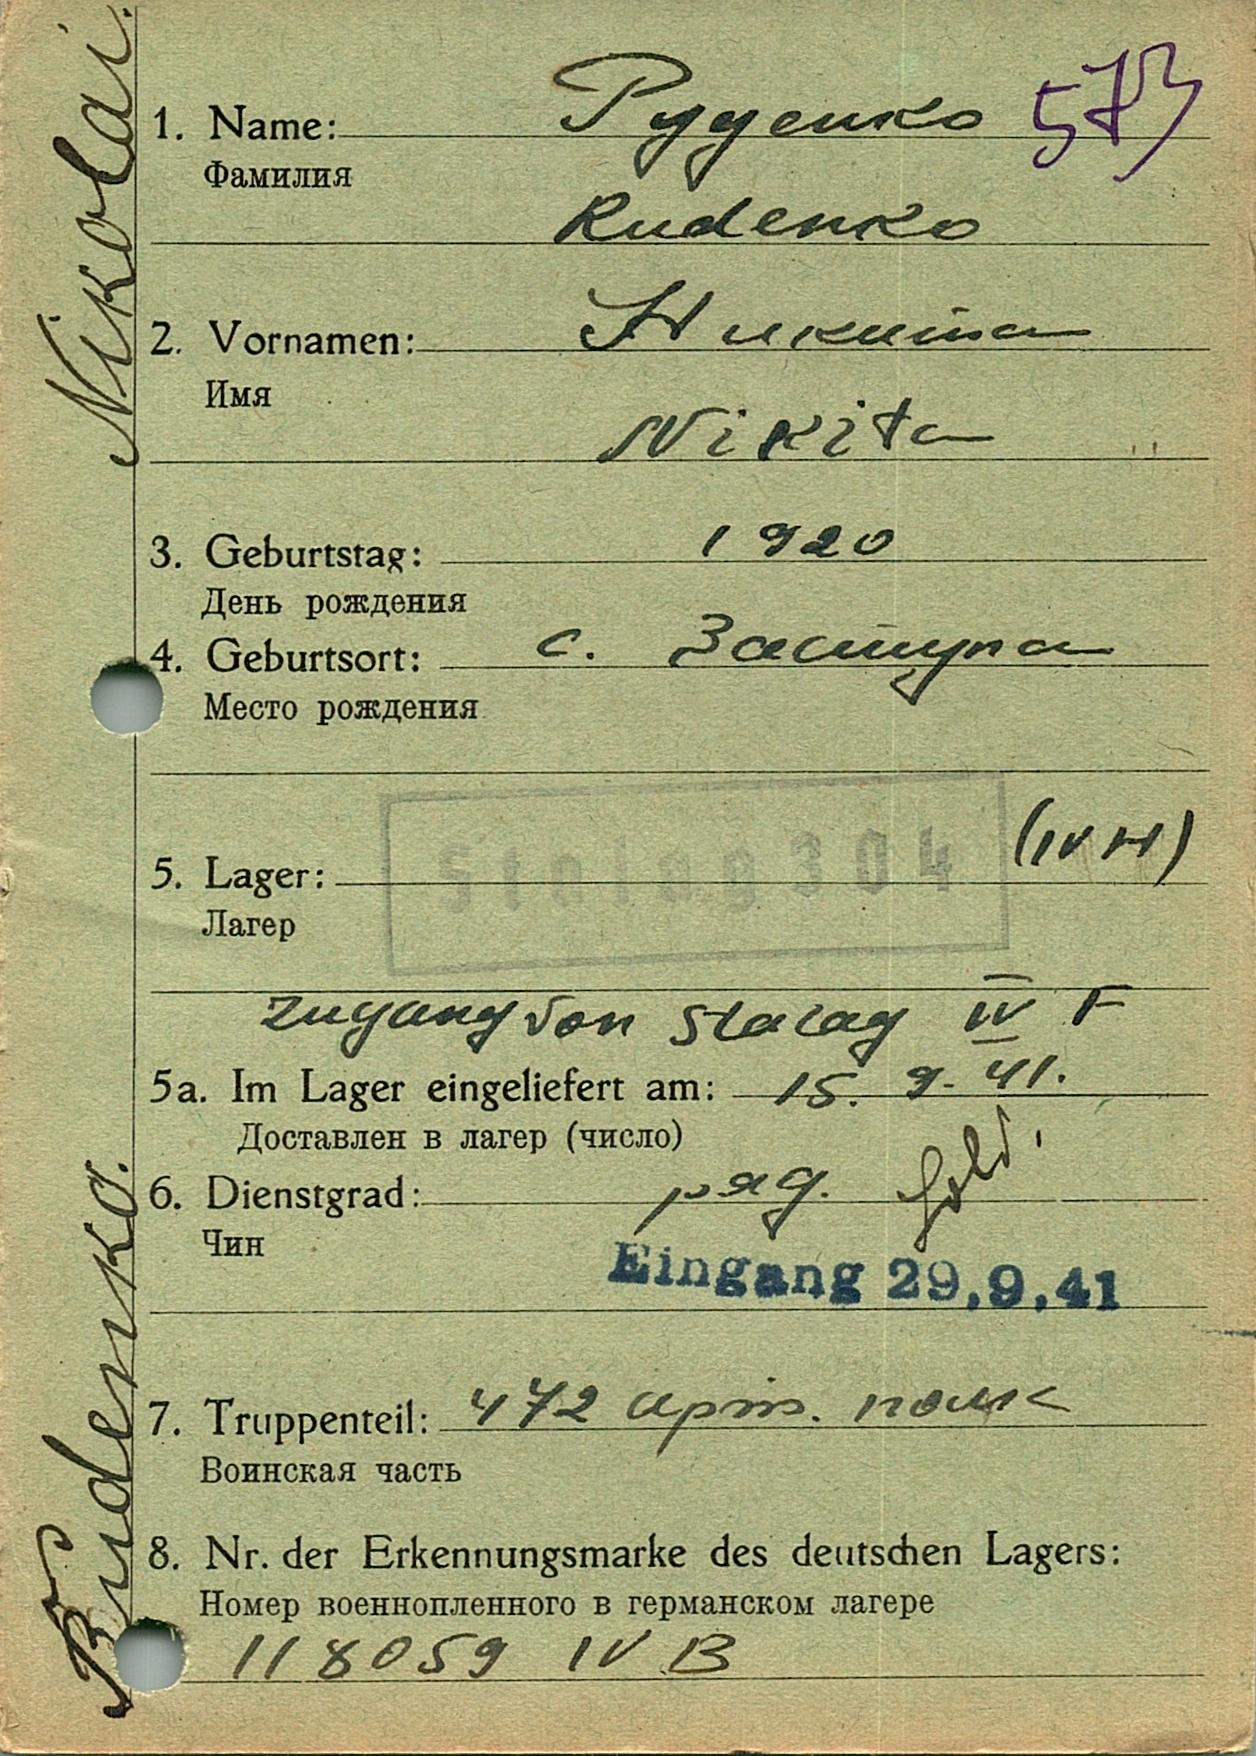 Nikolai.
1. Name: Руденко 573
Фамилия
Rudenko
2. Vornamen: Никита
Имя
Nikita
3. Geburtstag: 1920
День рождения
4. Geburtsort: с. Заступа
Место рождения
(IV H)
5. Lager: Stalag 304
Лагер
Zugang von Stalag IV F
5a. Im Lager eingeliefert am: 15. 9. 41.
Доставлен в лагер (число)
6. Dienstgrad: ряд. Sold.
Чин
Eingang 29.9.41
7. Truppenteil: 472 арт. полк
Воинская часть
8. Nr. der Erkennungsmarke des deutschen Lagers:
Номер военнопленного в германском лагере
118059 IV B